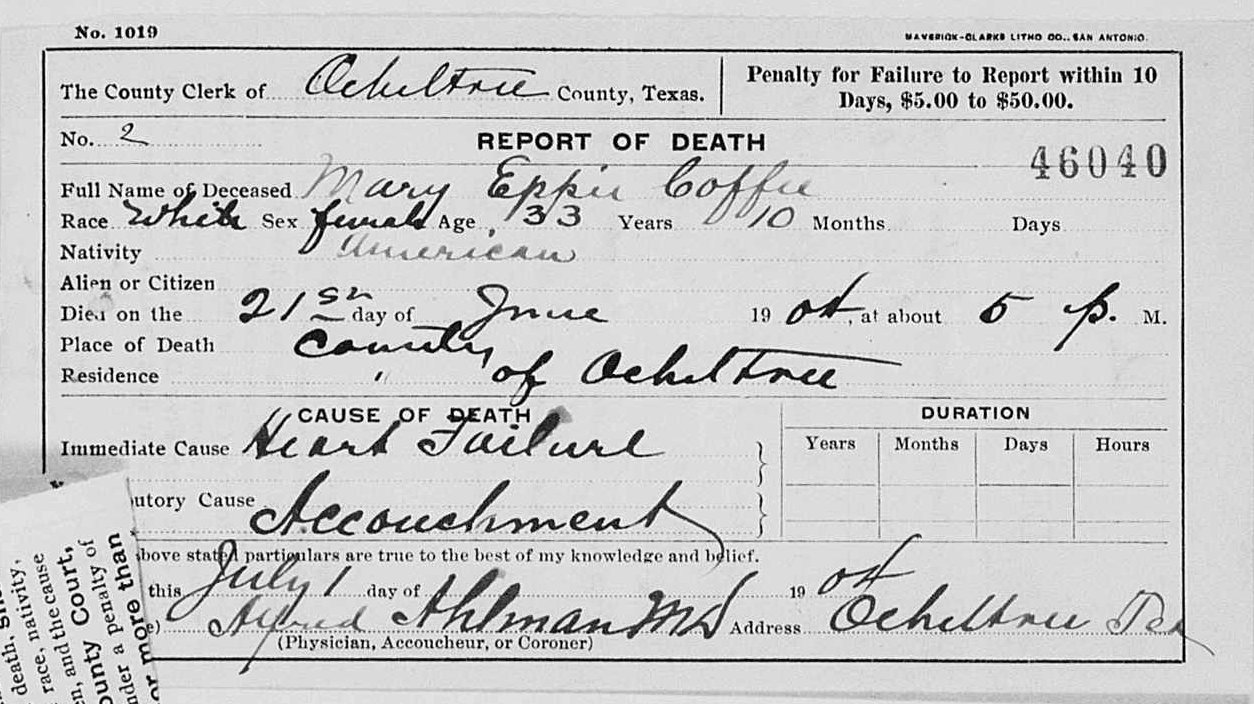 No. 1019
MAVERICK-CLARKE LITHO CO., SAN ANTONIO.
The County Clerk of Ochiltree County, Texas.
Penalty for Failure to Report within 10
Days, $5.00 to $50.00.
No. 2
REPORT OF DEATH
46040
Full Name of Deceased Mary Eppie Coffee
Race White Sex female Age 33 Years 10 Months Days
Nativity American
Alien or Citizen
Died on the 21st day of June 1904, at about 5 p. M.
Place of Death County
Residence " of Ochiltree
CAUSE OF DEATH
DURATION
Immediate Cause Heart Failure
Years Months Days Hours
utory Cause Accouchment
bove stated particulars are true to the best of my knowledge and belief.
this July 1 day of 1904
e) Alfred Ahlman MD Address Ochiltree Tex
(Physician, Accoucheur, or Coroner)
death, 
race, nativity,
n, and the cause
ounty Court,
nder a penalty of
or more than